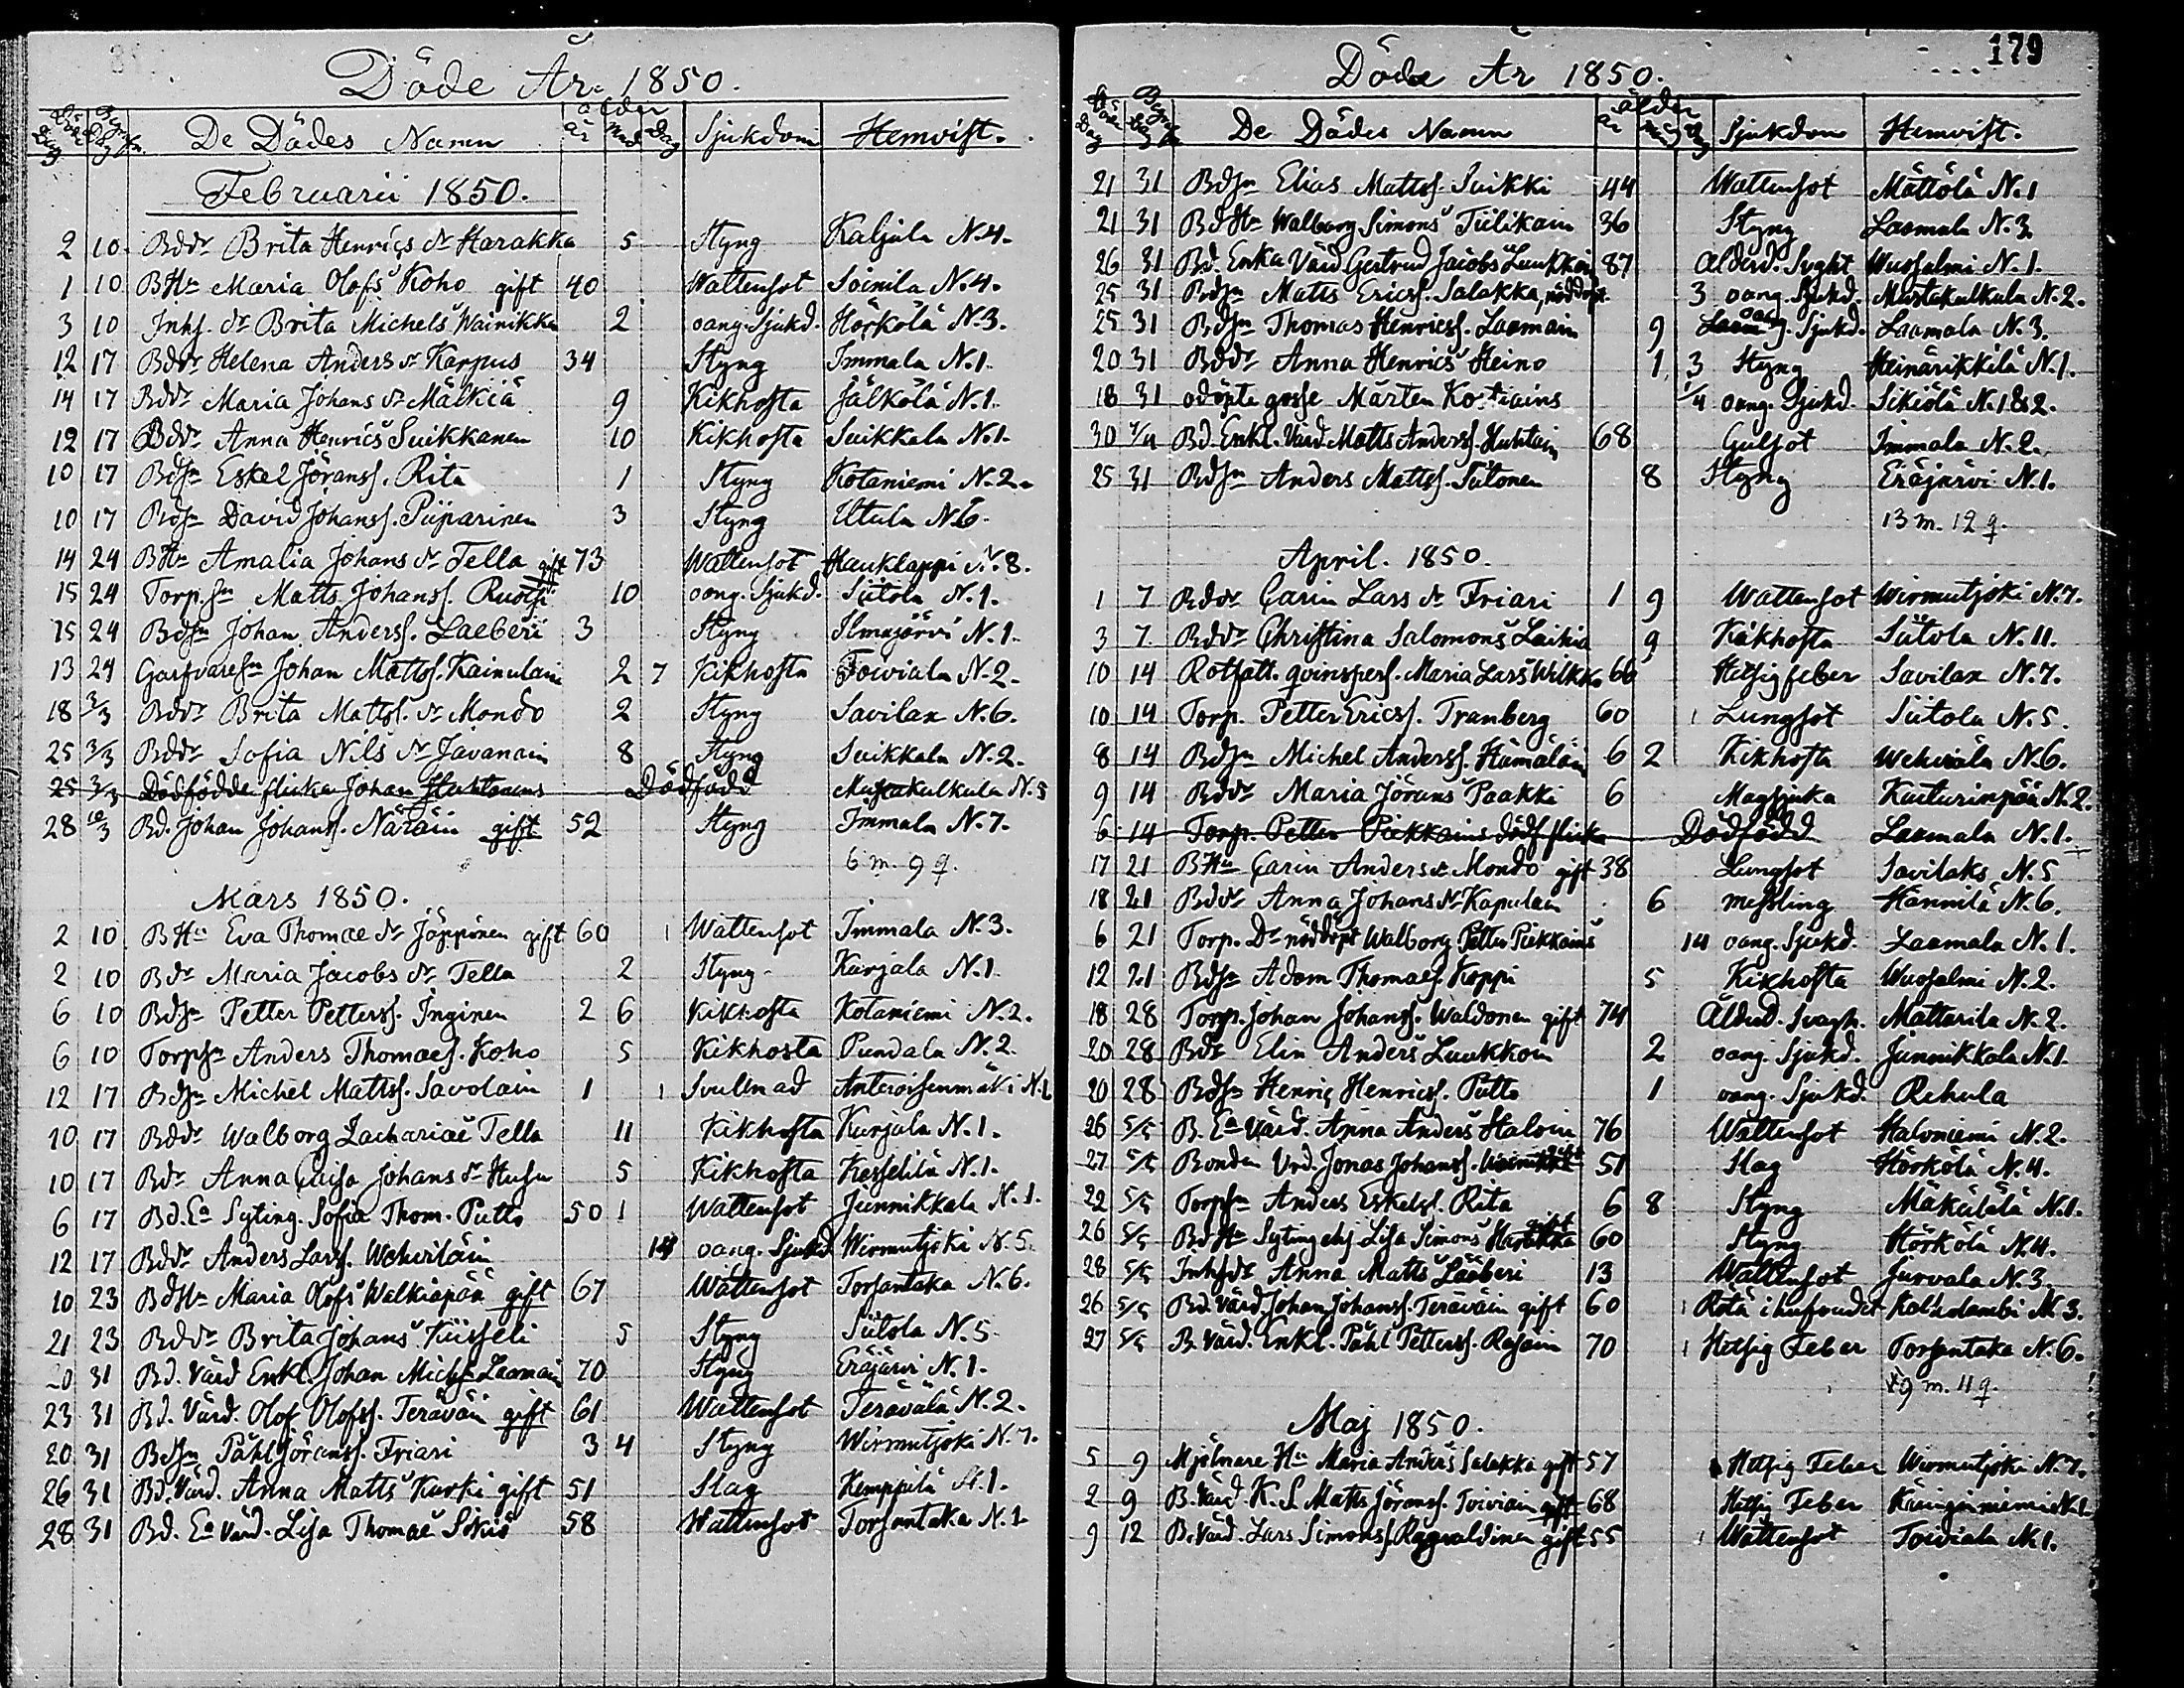 Döde År. 1850.
Döde Dag Begrafn. Dag De Dödes Namn ålder år Mnd Dag Sjukdom Hemvist.
Februarii 1850.
2 10 Bddr Brita Henriçs dr Harakka 5 Styng Kaljula N.4.
1 10 BHu Maria Olofs Koho gift 40 Wattensot Soimila N.4.
3 10 Inhs. dr Brita Michels Wainikka 2 oang. Sjukd. Hörkölä N.3.
12 17 Bddr Helena Anders dr Karpus 34 Styng Immala N.1.
14 17 Bddr Maria Johans dr Mälkiä 9 Kikhosta Jälkölä N.1.
12 17 Bddr Anna Henrics Suikkanen 10 Kikhosta Suikkala N.1.
10 17 Bdsn Eskel Jöranss. Rita 1 Styng Kotaniemi N.2.
10 17 Bdsn David Johanss. Piiparinen 3 Styng Utula N.6.
14 24 BHu Amalia Johans dr Tella gift 73 Wattensot Hauklappi N.8.
15 24 Torp.sn Matts Johanss. Ruotsi 10 oang. Sjukd. Siitola N.1.
15 24 Bdsn Johan Anderss. Laeberi 3 Styng Ilmajärvi N.1.
13 24 Garfvaresn Johan Mattss. Kainulain 2 7 Kikhosta Toiviala N.2.
18 3/3 Bddr Brita Mattss. dr Mondo 2 Styng Savilax N.6.
25 3/3 Bddr Sofia Nils dr Javanain 8 Styng Suikkala N.2.
25 3/3 Dödfödde flicka Johan Huhtanens Dödfödd Mustakulkula N.5
28 10/3 Bd. Johan Johanss. Näräin gift 52 Styng Immala N.7.
6 m. 9 q.
Mars 1850.
2 10 BHu Eva Thomae dr Jäppinen gift 60 Wattensot Immala N.3.
2 10 Bdr Maria Jacobs dr Tella 2 Styng Kurjala N.1
6 10 Bdsn Petter Petterss. Inginen 2 6 Kikhosta Kotaniemi N.2.
6 10 Torpsn Anders Thomaes. Koho 5 Kikhosta Pundala N.2.
12 17 Bdsn Michel Mattss. Savolain 1 Svullnad Anteroisenmäki N.1
10 17 Bddr Walborg Zachariae Tella 11 Kikhosta Kurjala N.1.
10 17 Bdr Anna Caisa Johans dr Husu 5 Kikhosta Kesselilä N.1.
6 17 Bd. Ea Syting. Sofia Thom. Putto 50 1 Wattensot Junnikkala N.1.
12 17 Bddr Anders Larss. Wehviläin 14 oang. Sjukd Wirmutjoki N.5.
10 23 BdHu Maria Olofs Walkiapää gift 67 Wattensot Torsantaka N.6.
21 23 Bddr Brita Johans Kiisseli 5 Styng Siitola N.5.
20 31 Bd. Värd Enkl. Johan Michs. Laamain 70 Styng Eräjärvi N.1.
23 31 Bd. Värd. Olof Olofss. Teräväin gift 61 Wattensot Teräwälä N.2.
20 31 Bdsn Påhl Jöranss. Friari 3 4 Styng Wirmutjoki N.7.
26 31 Bd. Värd. Anna Matts Kurki gift 51 Slag Kemppilä N.1.
28 31 Bd. Ea Värd. Lisa Thomae Sikiö 58 Wattensot Torsantaka N.1.
179
Döde År 1850.
Döde Dag Begrafn. Dag De Dödes Namn ålder år Mnd Dag Sjukdom Hemvist.
21 31 Bdsn Elias Mattss. Suikki 44 Wattensot Mättölä N.1
21 31 BdHu Walborg Simons Tiilikain 36 Styng Laamala N.3.
26 31 Bd. Enka Värd Gertrud Jacobs Luukkoin 87 Ålderd. Svght Wuosalmi N.1.
25 31 Bdsn Matts Ericss. Salakka, nöddöpt. 3 oang. Sjukd. Mustakulkula N.2.
25 31 Bdsn Thomas Henricss. Laamain 9 oang. Sjukd. Laamala N.3.
20 31 Bddr Anna Henrics Heino 1 3 Styng Heinärikkilä N.1.
18 31 odöpte gosse Mårten Kostiains 1/4 oang. Sjukd. Sikiölä N.1&2.
30 7/4 Bd. Enkl. Värd. Matts Anderss. Huhtain 68 Gulsot Immala N.2.
25 31 Bdsn Anders Mattss. Tiitonen 8 Styng Eräjärvi N.1.
13 m. 12 q.
April. 1850.
1 7 Bddr Carin Lars dr Friari 1 9 Wattensot Wirmutjoki N.7.
3 7 Bddr Christina Salomons Laikia 9 Kikhosta Siitola N.11.
10 14 Rotfatt. qvinspers. Maria Lars Wilkko 66 Hetsigfeber Savilax N.7.
10 14 Torp. Petter Ericss. Tranberg 60 Lungsot Siitola N.5.
8 14 Bdsn Michel Anderss. Hämäläin 6 2 Kikhosta Wehviälä N.6.
9 14 Bddr Maria Jörans Paakki 6 Magsjuka Kuiturinpää N.2.
6 14 Torp. Petter Piekkains dödf. flicka Dödfödd Laamala N.1.
17 21 BHu Carin Anders dr Mondo gift 38 Lungsot Savilaks N.5
18 21 Bddr Anna Johans dr Kapulain 6 messling Hännilä N.6.
6 21 Torp. Dr nöddöpt Walborg Petter Piekkains 14 oang. Sjukd. Laamala N.1.
12 21 Bdsn Adam Thomaes. Koppi 5 Kikhosta Wuosalmi N.2.
18 28 Torp. Johan Johanss. Waldonen gift 74 Ålderd. Svagh. Mattarila N.2.
20 28 Bdr Elin Anders Luukkoin 2 oang. Sjukd. Junnikkala N.1.
20 28 Bdsn Henriç Henricss. Putto 1 oang. Sjukd. Rehula
26 5/5 B. Ea Värd. Anna Anders Haloin 76 Wattensot Haloniemi N.2.
27 5/5 Bonden Vrd. Jonas Johanss. 51 Slag Hörkölä N.4.
22 5/5 Torpsn Anders Eskelss. Rita 6 8 Styng Mäkälälä N.1.
26 5/5 BdHu Sytingehj Lisa Simons Harakka gift 60 Styng Hörkölä N.4.
28 5/5 Inhsdr Anna Matts Lääberi 13 Wattensot Jurvala N.3.
26 5/5 Bd. Värd. Johan Johanss. Teräväin gift 60 Röta i hufvudet N.3.
27 5/5 B. Värd. Enkl. Påhl Petterss. Rasain 70 Hetsig Feber Torsantaka N.6.
9 m. 11 q.
Maj 1850.
5 9 Mjölnare Hu Maria Anders Salakka gift 57 Hetsig Feber Wirmutjoki N.7.
2 9 B. Värd K. S. Matts Jöranss. Toiviain gift 68 Hetsig Feber Känginiemi N.1.
9 12 B. Värd. Lars Simonss. Ragvaldinen gift 55 Wattensot Toiviala N.1.